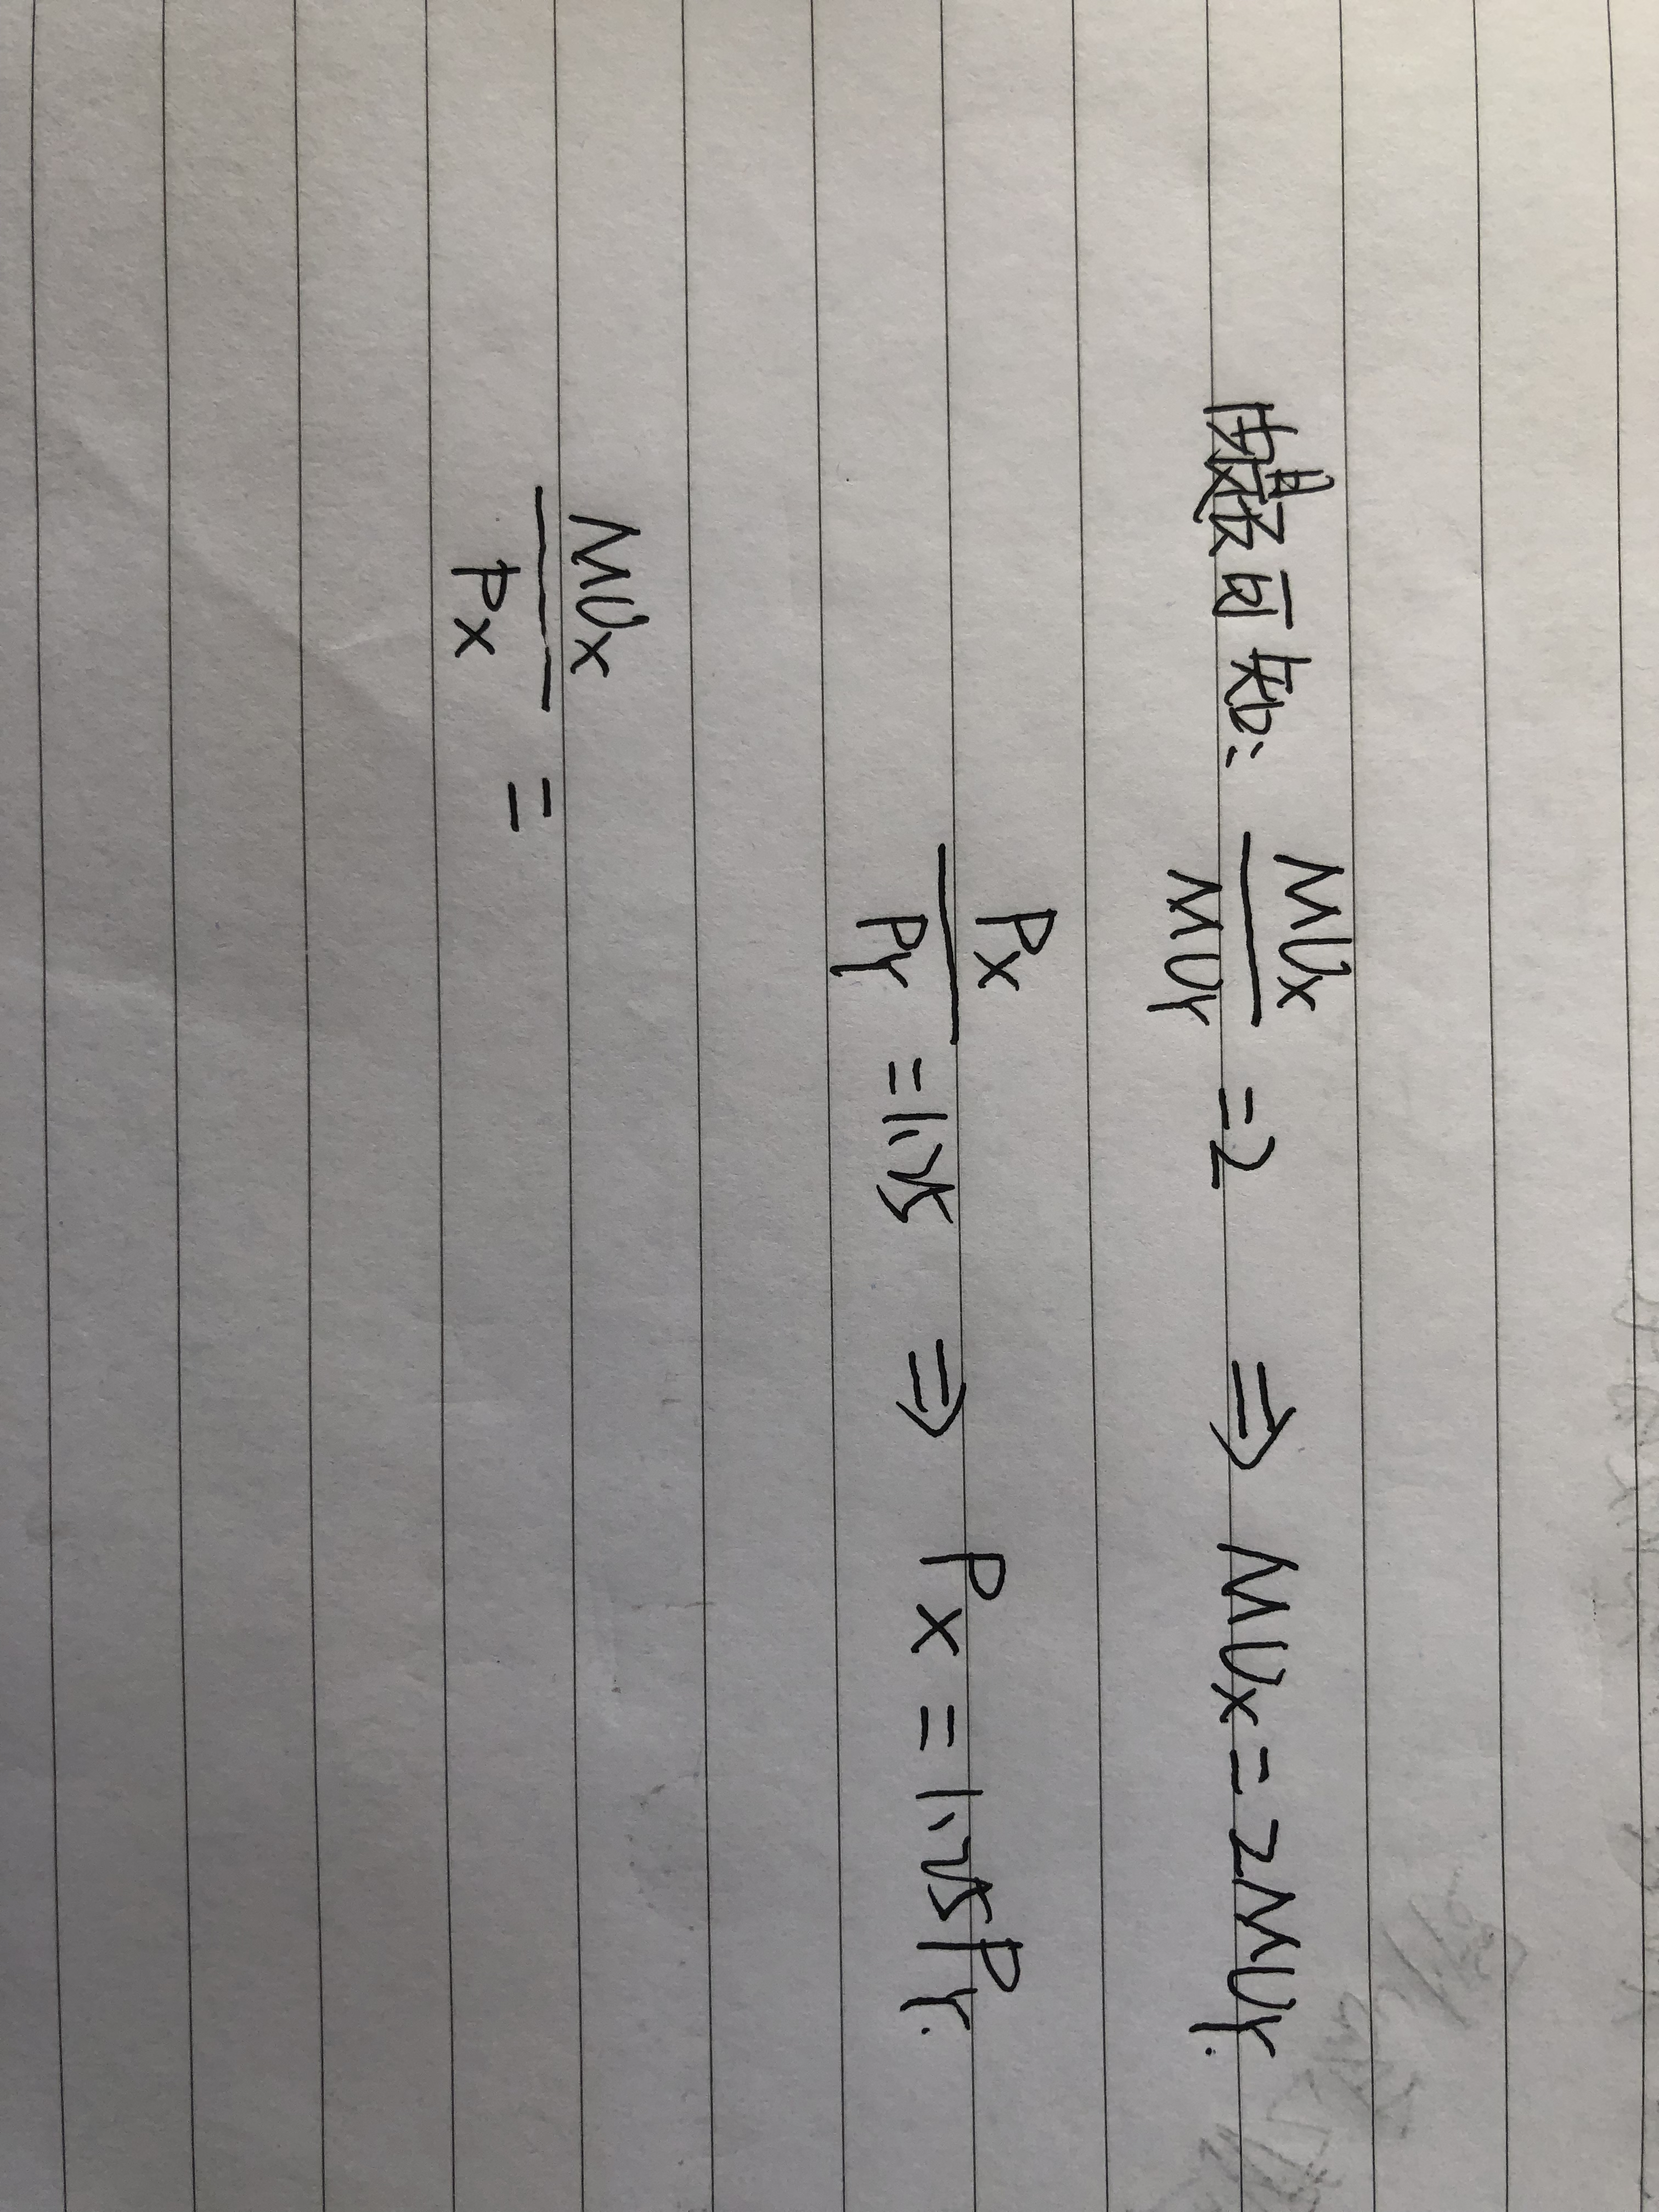 由题可知: MUx/MUY =2 ⇒ MUx=2MUY.
Px/PY =1.25 ⇒ Px =1.25PY.
MUx/Px =